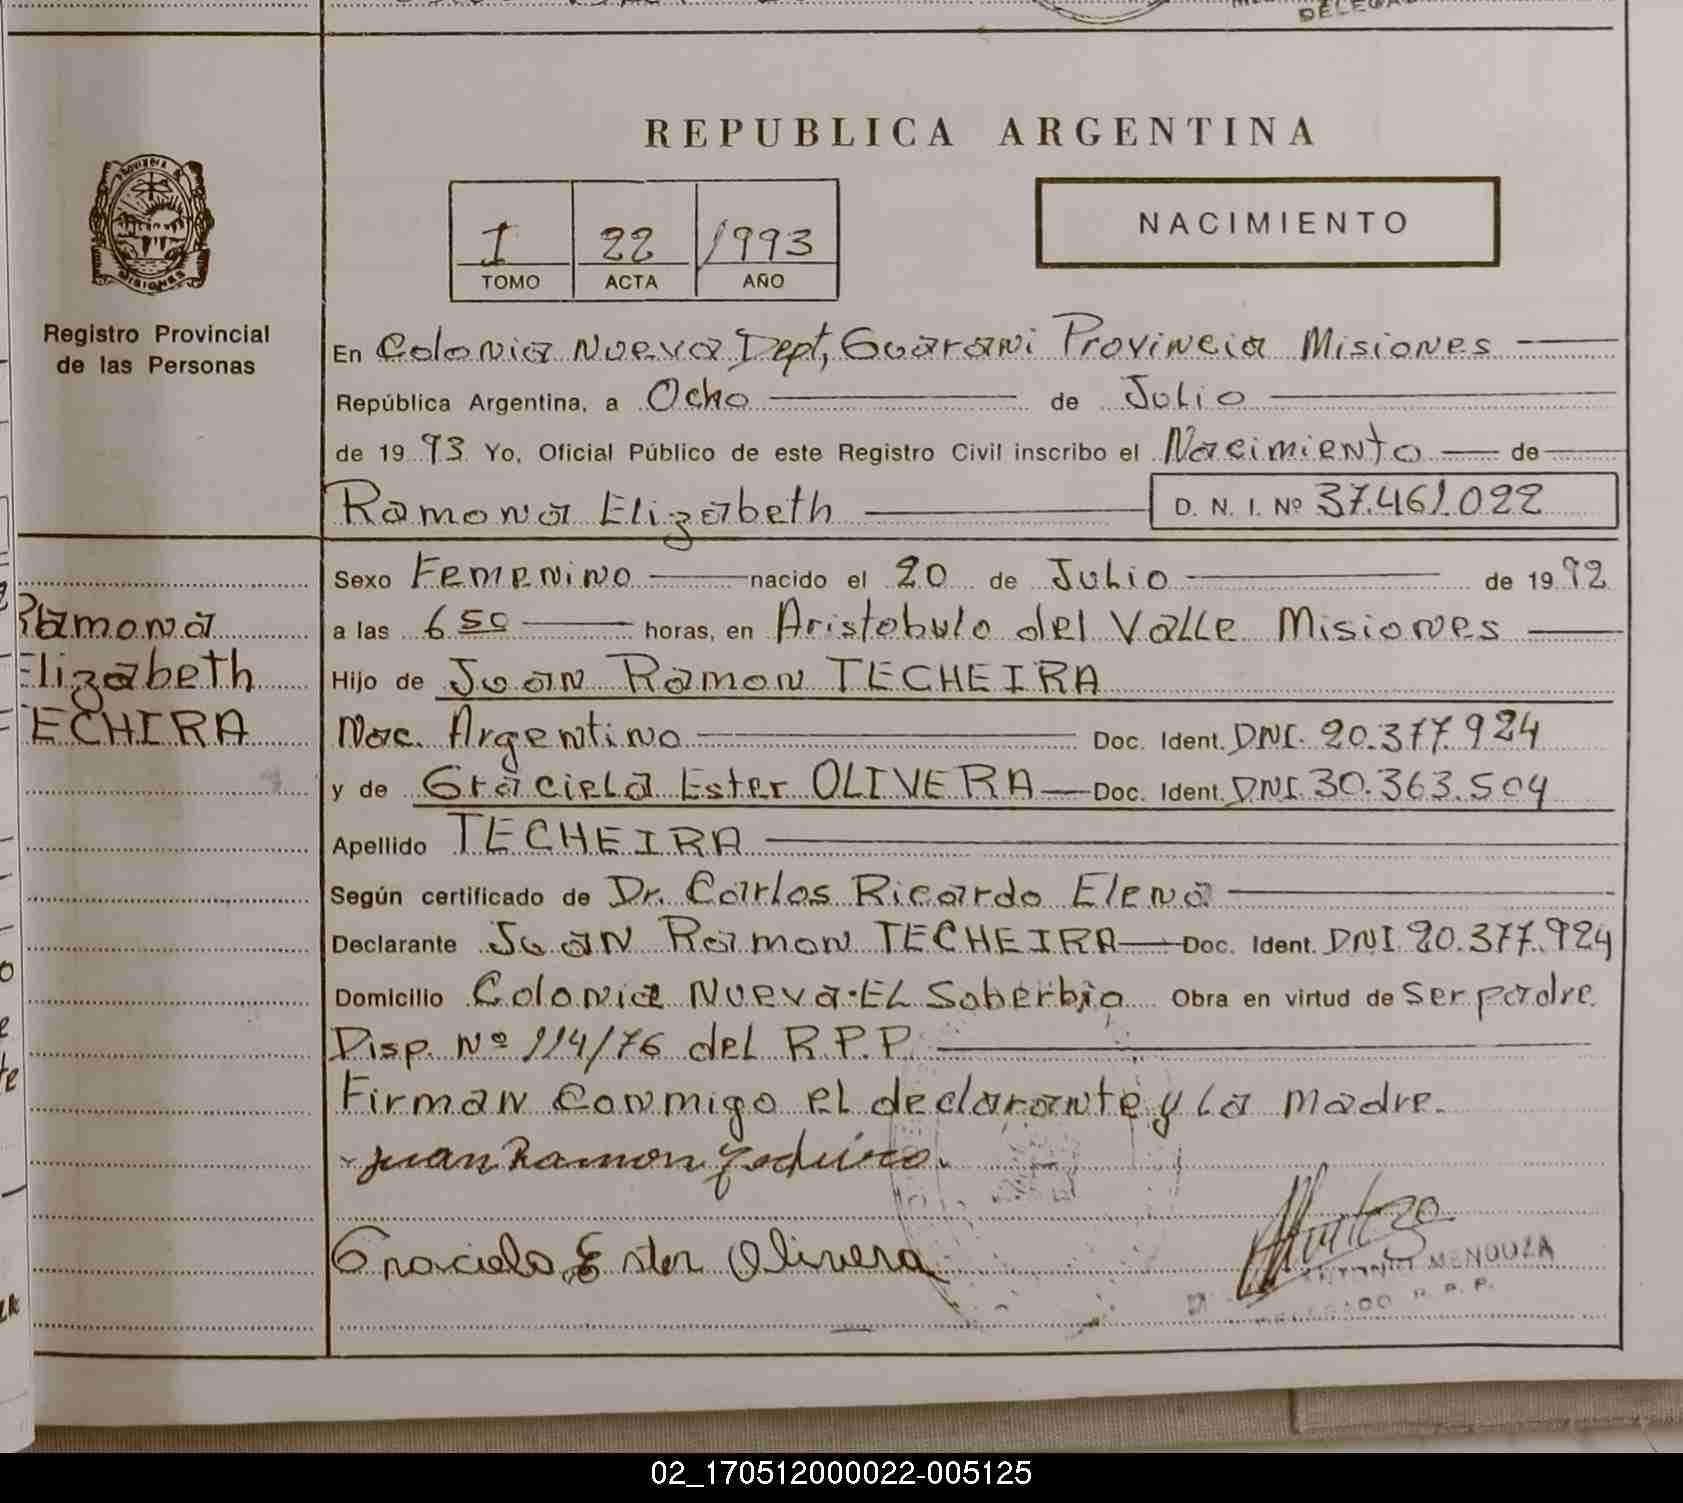 DELEGA
REPUBLICA ARGENTINA
PROVINCIA DE
MISIONES
Registro Provincial
de las Personas
I 22 1993
TOMO ACTA AÑO
NACIMIENTO
En Colonia Nueva Dept, Guarani Provincia Misiones
República Argentina, a Ocho de Julio
de 19 93 Yo, Oficial Público de este Registro Civil inscribo el Nacimiento de
Ramona Elizabeth D. N. I. Nº 37.461.022
Sexo Femenino nacido el 20 de Julio de 19 92
a las 6 50 horas, en Aristobulo del Valle Misiones
Hijo de Juan Ramon TECHEIRA
Nac. Argentino Doc. Ident. DNI. 20.377.924
y de Graciela Ester OLIVERA Doc. Ident. DNI 30.363.504
Apellido TECHEIRA
Según certificado de Dr. Carlos Ricardo Elena
Declarante Juan Ramon TECHEIRA Doc. Ident. DNI 20.377.924
Domicilio Colonia Nueva-EL Soberbio Obra en virtud de Ser padre
Disp. Nº 114/76 del R.P.P.
Firman Conmigo el declarante y la madre.
Juan Ramon
Graciela Ester Olivera
ANTONIO MENDOZA
DELEGADO R. P. P.
Ramona
Elizabeth
ECHIRA
02_170512000022-005125